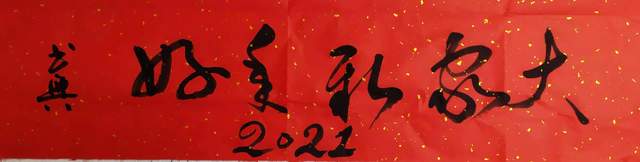 大家新年好
2021